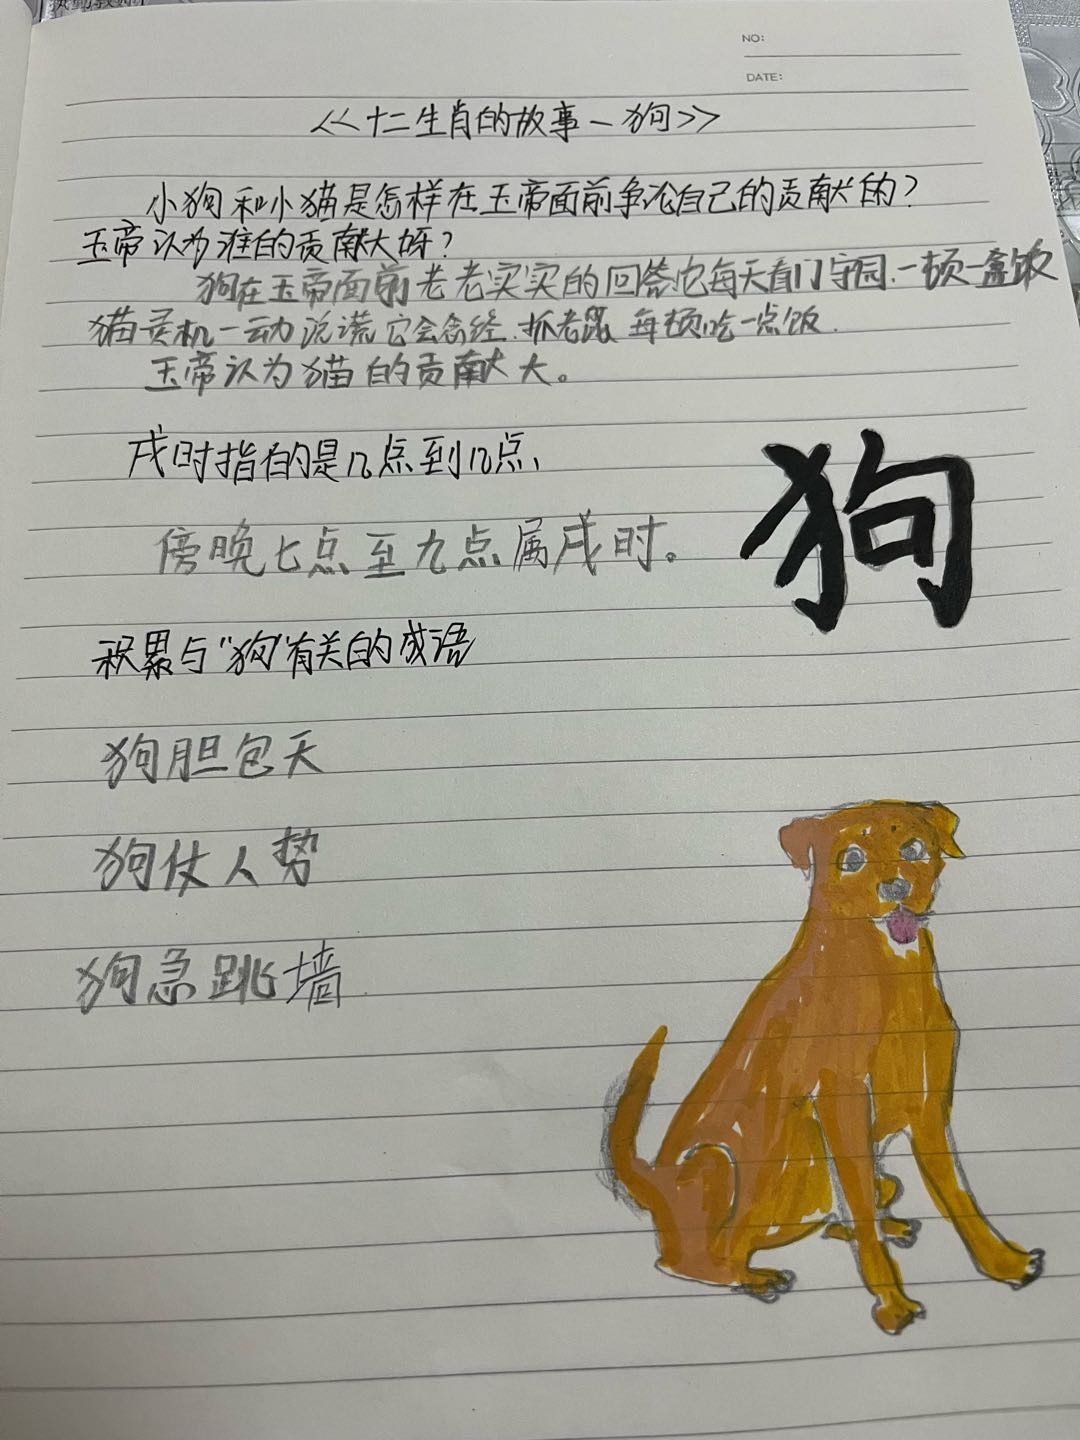 NO:
DATE:
<<十二生肖的故事—狗>>
小狗和小猫是怎样在玉帝面前争论自己的贡献的?
玉帝认为谁的贡献大呀?
狗在玉帝面前老老实实的回答它每天看门守园.一顿一盒饭
猫灵机一动说谎它会念经.抓老鼠 每顿吃一点饭.
玉帝认为猫的贡献大。
戌时指的是几点到几点、
傍晚七点至九点属戌时。
狗
积累与"狗"有关的成语
狗胆包天
狗仗人势
狗急跳墙